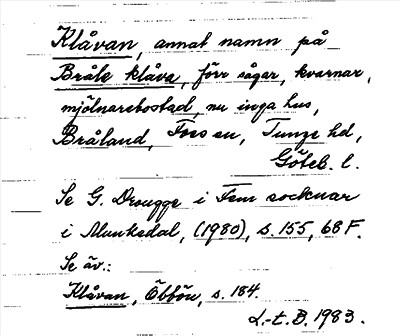 Klåvan, annat namn på
Bråle klåva, förr sågar, kvarnar,
mjölnarebostad, nu inga hus,
Bråland, Foss sn, Tunge hd,
Göteb. l.
Se G. Drougge i Fem socknar
i Munkedal, (1980), s. 155, 68 F.
Se äv.:
Klåvan, ÖbFön, s. 184.
L.-t. B. 1983.